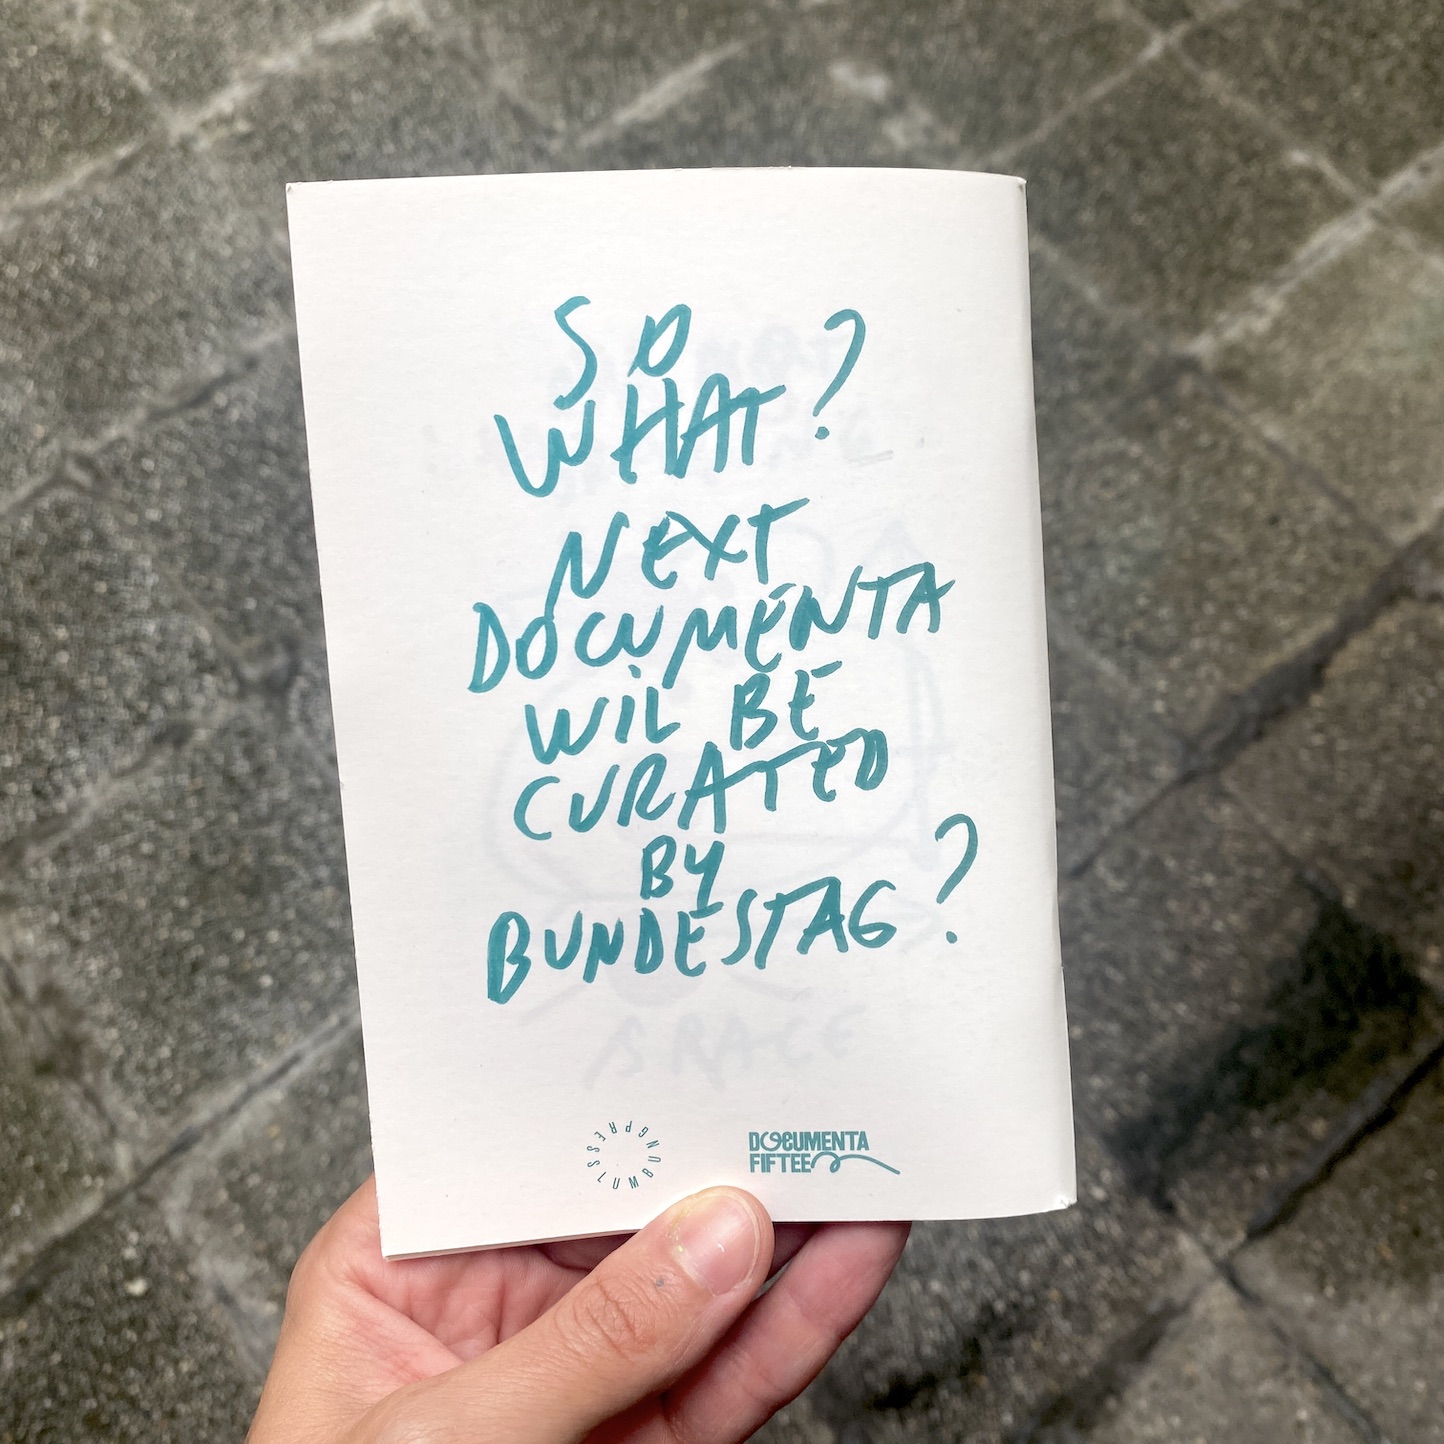 SO
WHAT?
NEXT
DOCUMENTA
WIL BE
CURATED
BY
BUNDESTAG?
SLUMBUNGPRESS
DOCUMENTA
FIFTEEN